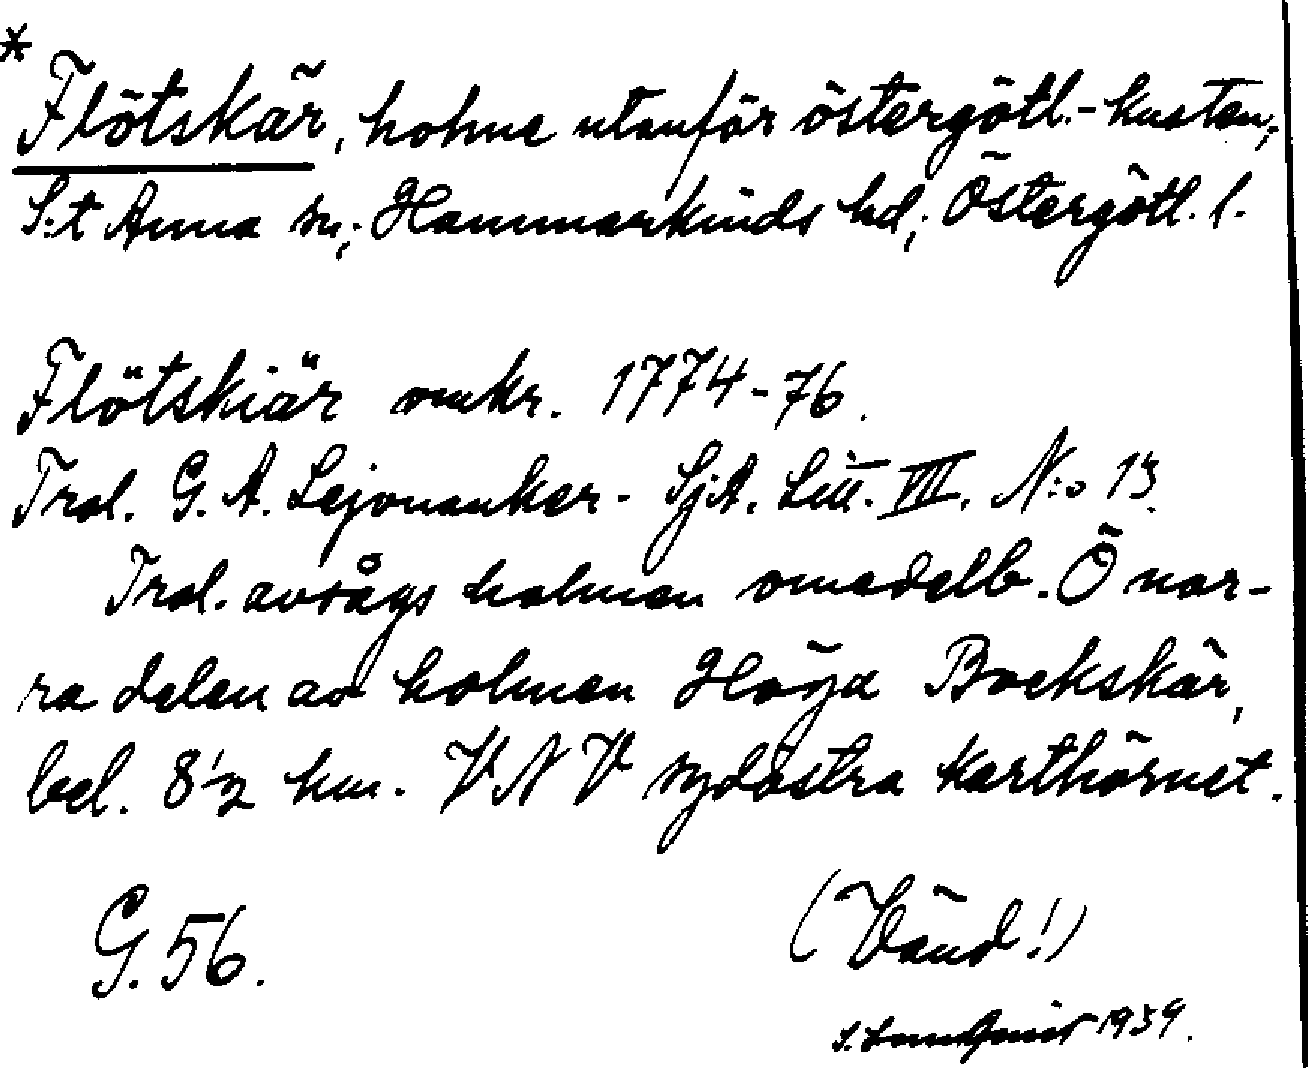 *
Flötskär, holme utanför östergötl.-kusten,
S:t Anna sn; Hammarkinds hd; Östergötl. l.
Flötskiär omkr. 1774-76.
Trol. G. A. Lejonanker. SjA. Litt. VIII. N:o 13.
Trol. avsågs holmen omedelb. Ö nor-
ra delen av holmen Höga Bockskär,
bel. 8 1/2 km. VNV sydöstra karthörnet.
G. 56.
(Vänd!)
1939.